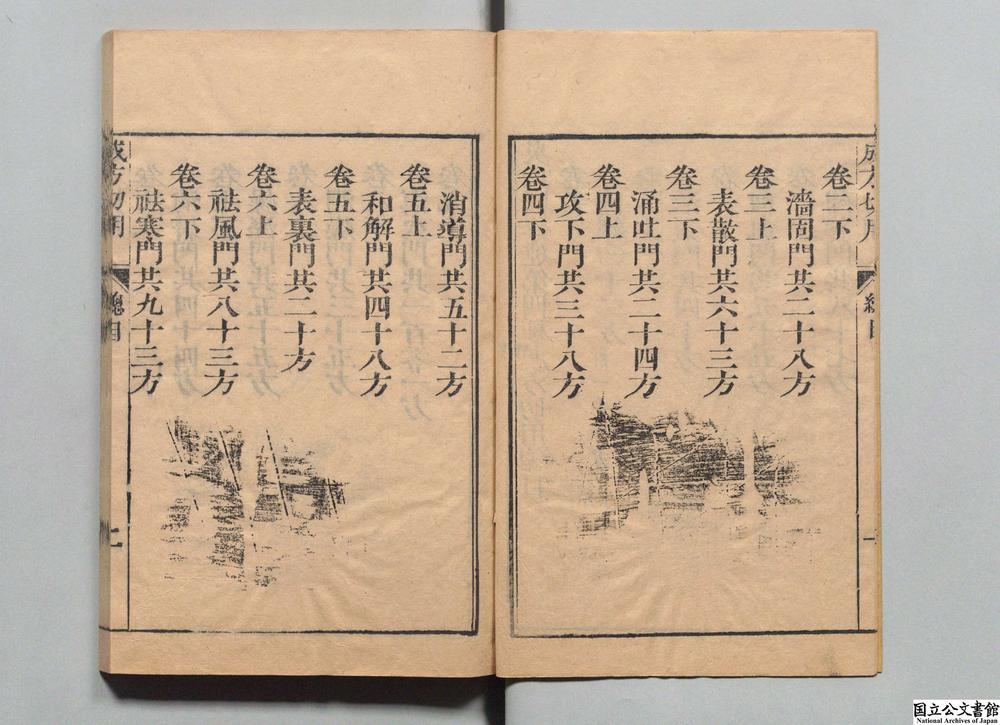 成方切用
總目
一
卷二下
濇固門共二十八方
卷三上
表散門共六十三方
卷三下
涌吐門共二十四方
卷四上
攻下門共三十八方
卷四下
消導門共五十二方
卷五上
和解門共四十八方
卷五下
表裏門共二十方
卷六上
祛風門共八十三方
卷六下
祛寒門共九十三方
成方切用
總目
二
国立公文書館
National Archives of Japan